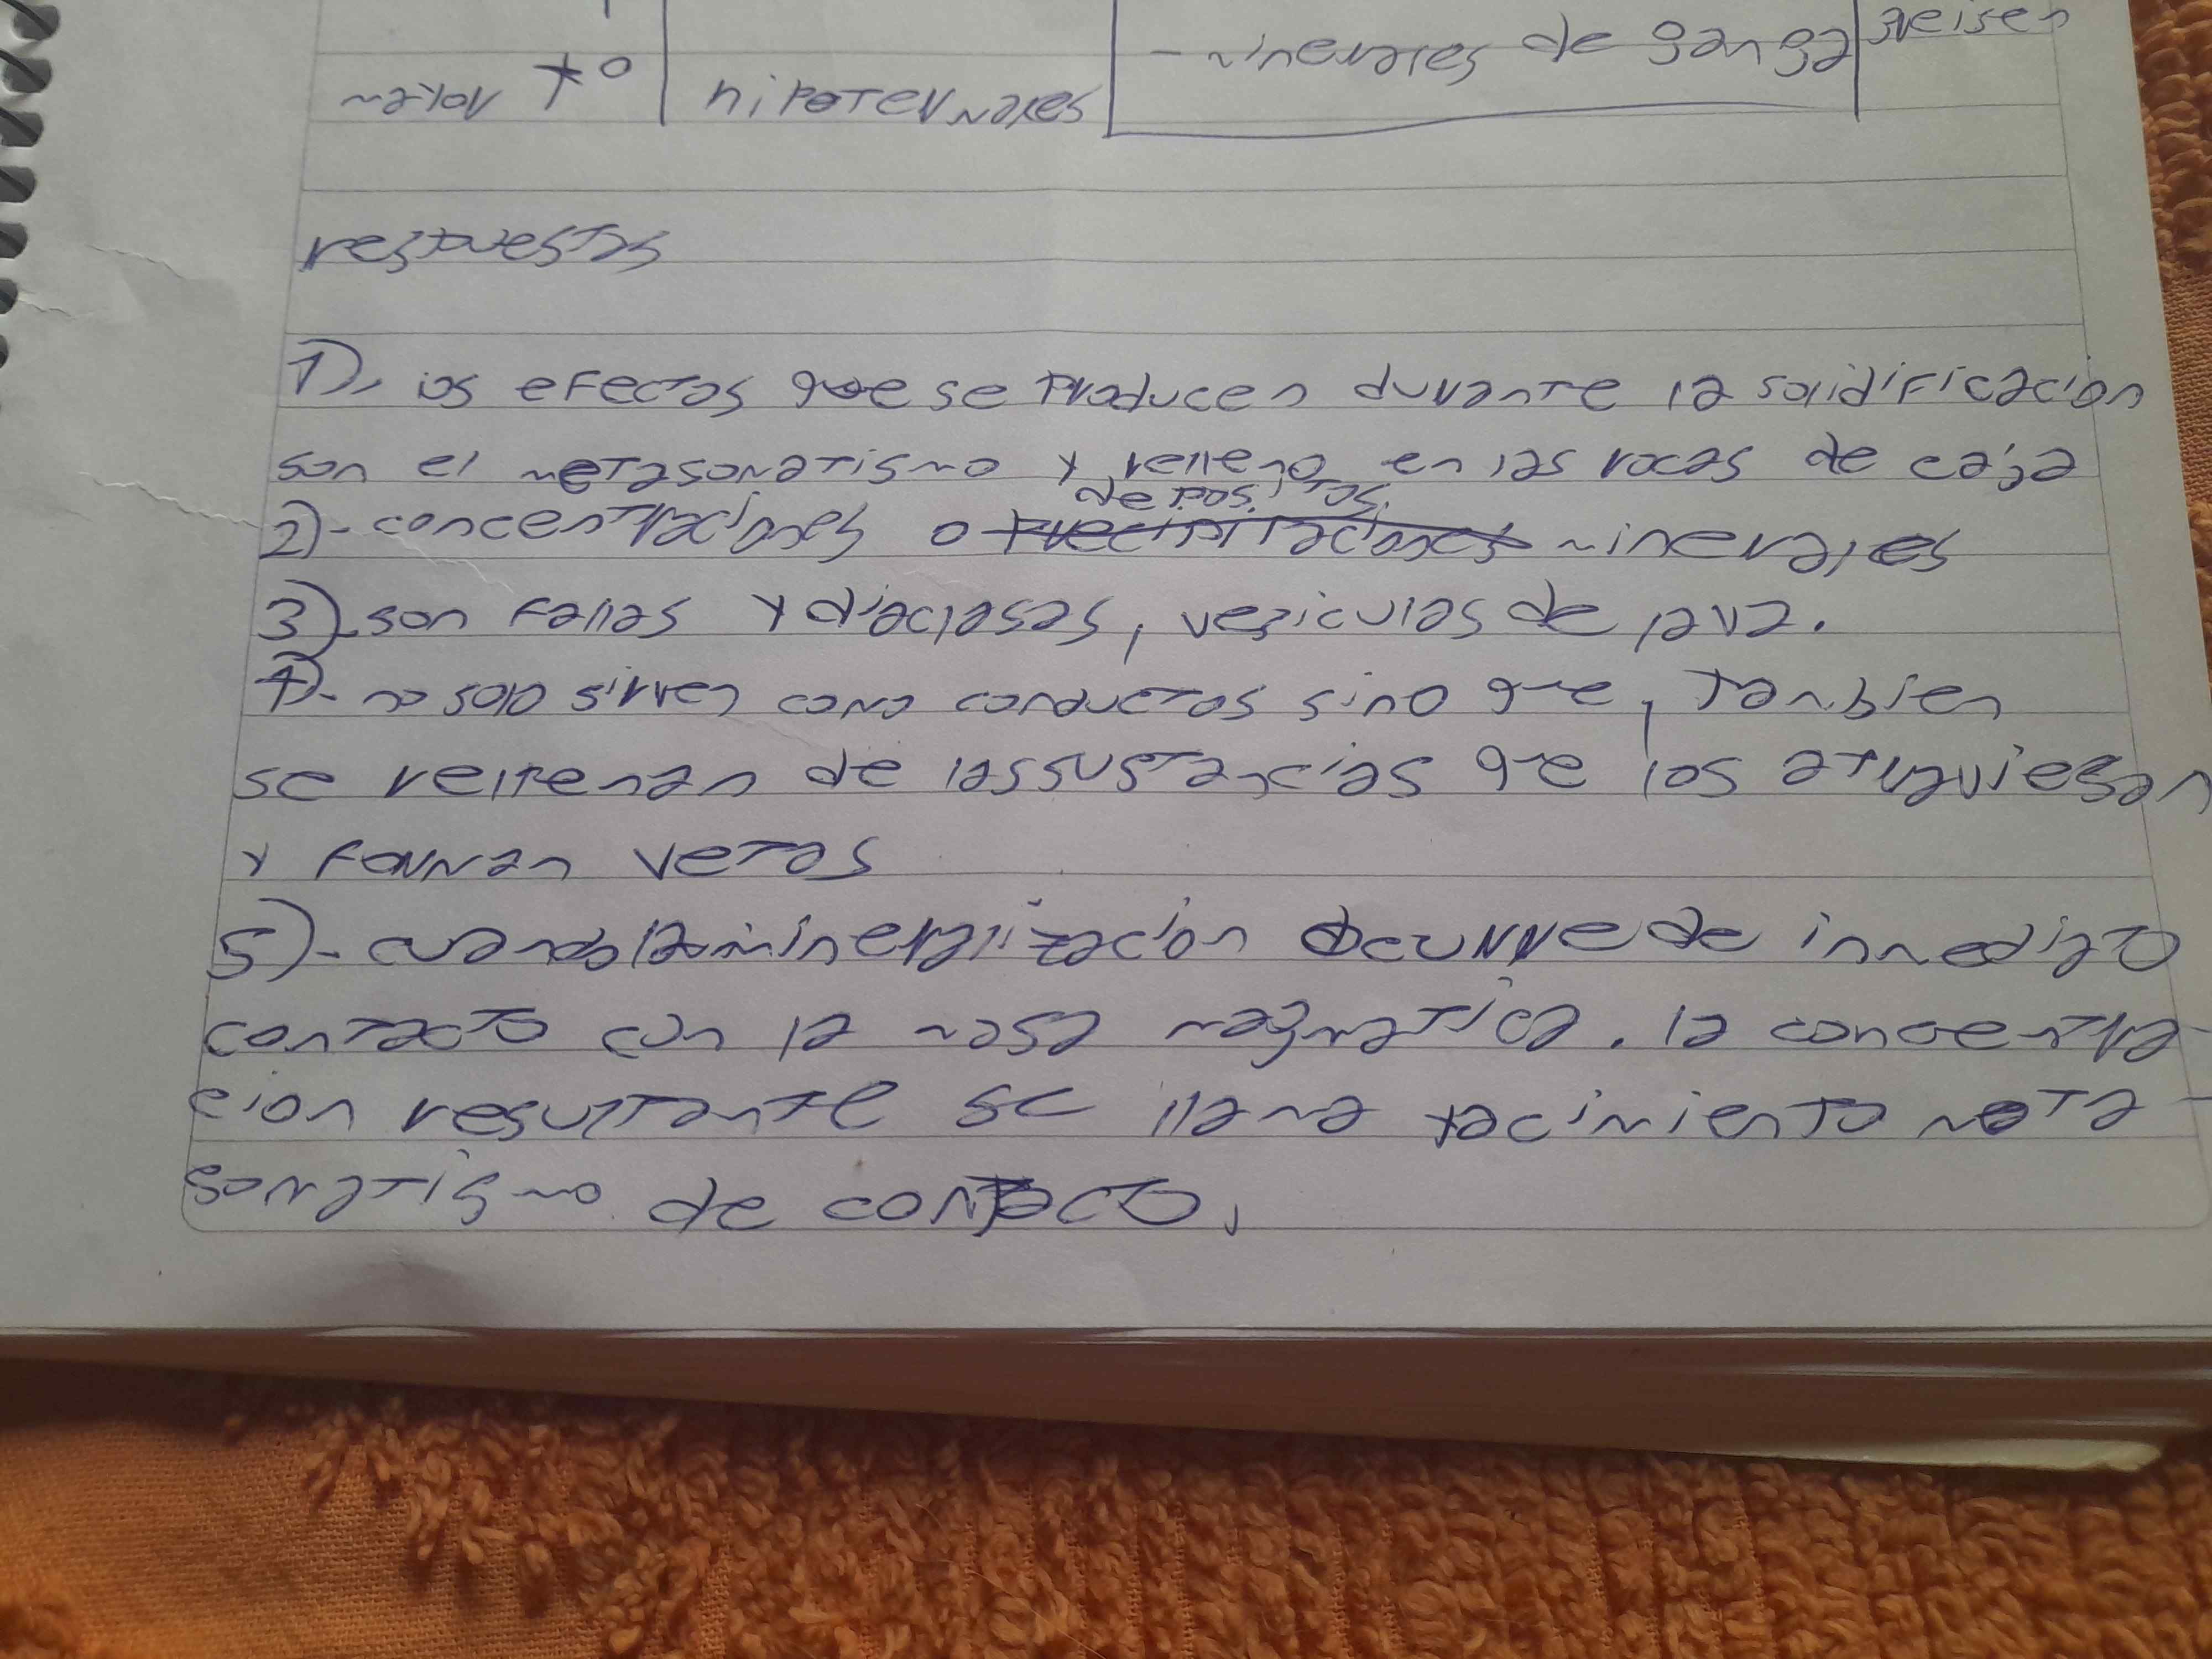 - minerales de ganga greisen
mayor t° hipotermales
respuestas
1)- los efectos que se producen durante la solidificación
son el metasomatismo y relleno en las rocas de caja
depositos
2)- concentraciones o precipitaciones minerales
3)- son fallas y diaclasas, vesiculas de lava.
4)- no solo sirven como conductos sino que, tambien
se rellenan de las sustancias que los atraviesan
y forman vetas
5)- cuando la mineralización ocurre de inmediato
contacto con la masa magmatica. la concentra-
cion resultante se llama yacimiento meta-
somatismo de contacto,